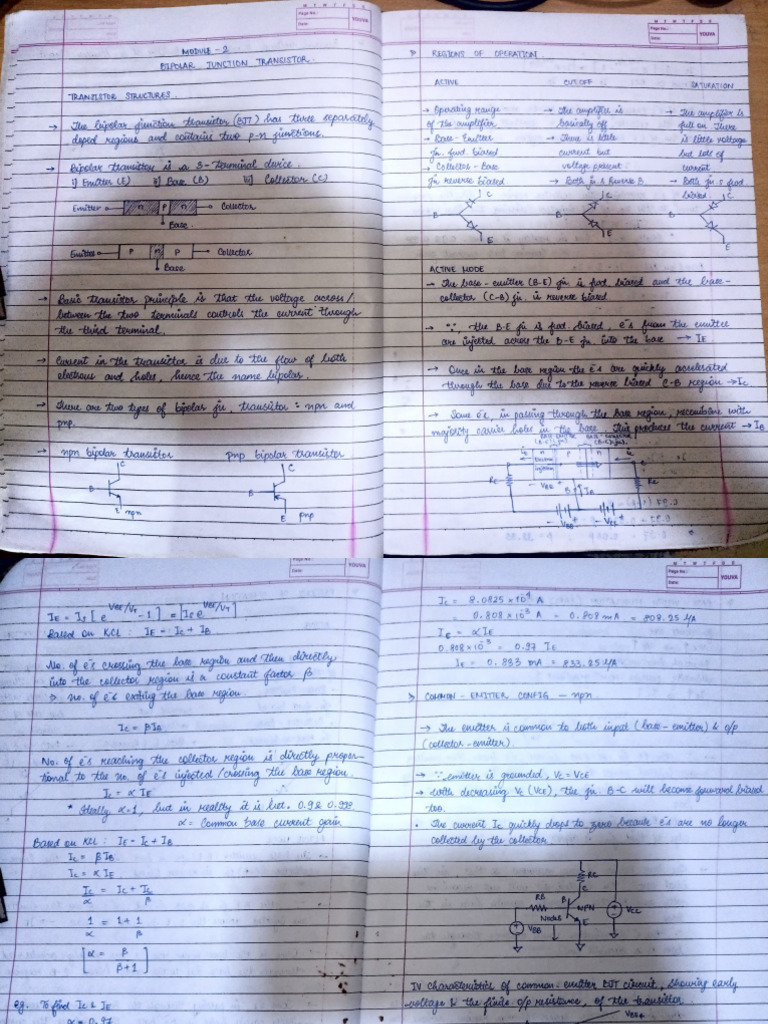 M T W T F S S
Page No.:
Date:
YOUVA
MODULE - 2
BIPOLAR JUNCTION TRANSISTOR.
TRANSISTOR STRUCTURES.
→ The bipolar junction transistor (BJT) has three separately
doped regions and contains two p-n junctions.
→ Bipolar transistor is a 3-terminal device.
i) Emitter (E) ii) Base (B) iii) Collector (C)
Emitter n p n Collector
Base.
Emitter P n P Collector
Base
→ Basic transistor principle is that the voltage across/
between the two terminals controls the current through
the third terminal.
→ Current in the transistor is due to the flow of both
electrons and holes, hence the name bipolar.
→ There are two types of bipolar jn, transistor : npn and
pnp.
→ npn bipolar transistor pnp bipolar transistor
C C
B B
E npn E pnp
M T W T F S S
Page No.:
Date:
YOUVA
REGIONS OF OPERATION.
ACTIVE CUTOFF SATURATION
→ Operating range → The amplifier is → The amplifier is
of the amplifier. basically off full on There
→ Base-Emitter → There is little is little voltage
jn. fwd biased current but but lots of
→ Collector-Base voltage present current
jn reverse biased → Both jn.s Reverse B → Both jn.s fwd.
biased
C C C
B
E E E
ACTIVE MODE
→ The base-emitter (B-E) jn. is fwd biased and the base-
collector (C-B) jn. is reverse biased
→ ∵, the B-E jn is fwd. biased, e's from the emitter
are injected across the B-E jn. into the base → IE
→ Once in the base region the e's are quickly accelerated
through the base due to the reverse biased C-B region → IC
→ Some e's, in passing through the Base region, recombine with
majority carrier holes in the base. This produces the current → IB
n P n
RE RC
- VBE + B IB
VBB VCC
Page No.:
Date:
YOUVA
IE = Is [ e^VBE/VT - 1 ] = Is e^VBE/VT
Based on KCL: IE = IC + IB
No. of e's crossing the base region and then directly
into the collector region is a constant factor β
no. of e's exiting the base region.
IC = βIB
No. of e's reaching the collector region is directly propor-
tional to the no. of e's injected/crossing the base region.
IC = α IE
* Ideally α=1, but in reality it is bet. 0.9 & 0.998
α = Common base current gain
Based on KCL : IE = IC + IB
IC = βIB
IC = αIE
IC/α = IC + IC/β
1/α = 1 + 1/β
[ α = β/β+1 ]
eg. To find IC & IE
α = 0.97
M T W T F S S
Page No.:
Date:
YOUVA
IC = 8.0825 × 10^-4 A
= 0.808 × 10^-3 A = 0.808 mA = 808.25 μA
IC = αIE
0.808 × 10^-3 = 0.97 IE
IE = 0.833 mA = 833.25 μA
COMMON-EMITTER CONFIG - npn
→ The emitter is common to both input (base-emitter) & o/p
(collector-emitter).
→ ∵ emitter is grounded, VC = VCE
→ With decreasing VC (VCE), the jn. B-C will become forward biased
too.
• The current IC quickly drops to zero because e's are no longer
collected by the collector.
RC
C
RB B NPN
E
VBB VCC
IV Characteristics of common-emitter BJT circuit, showing early
voltage & the finite o/p resistance, of the transistor.